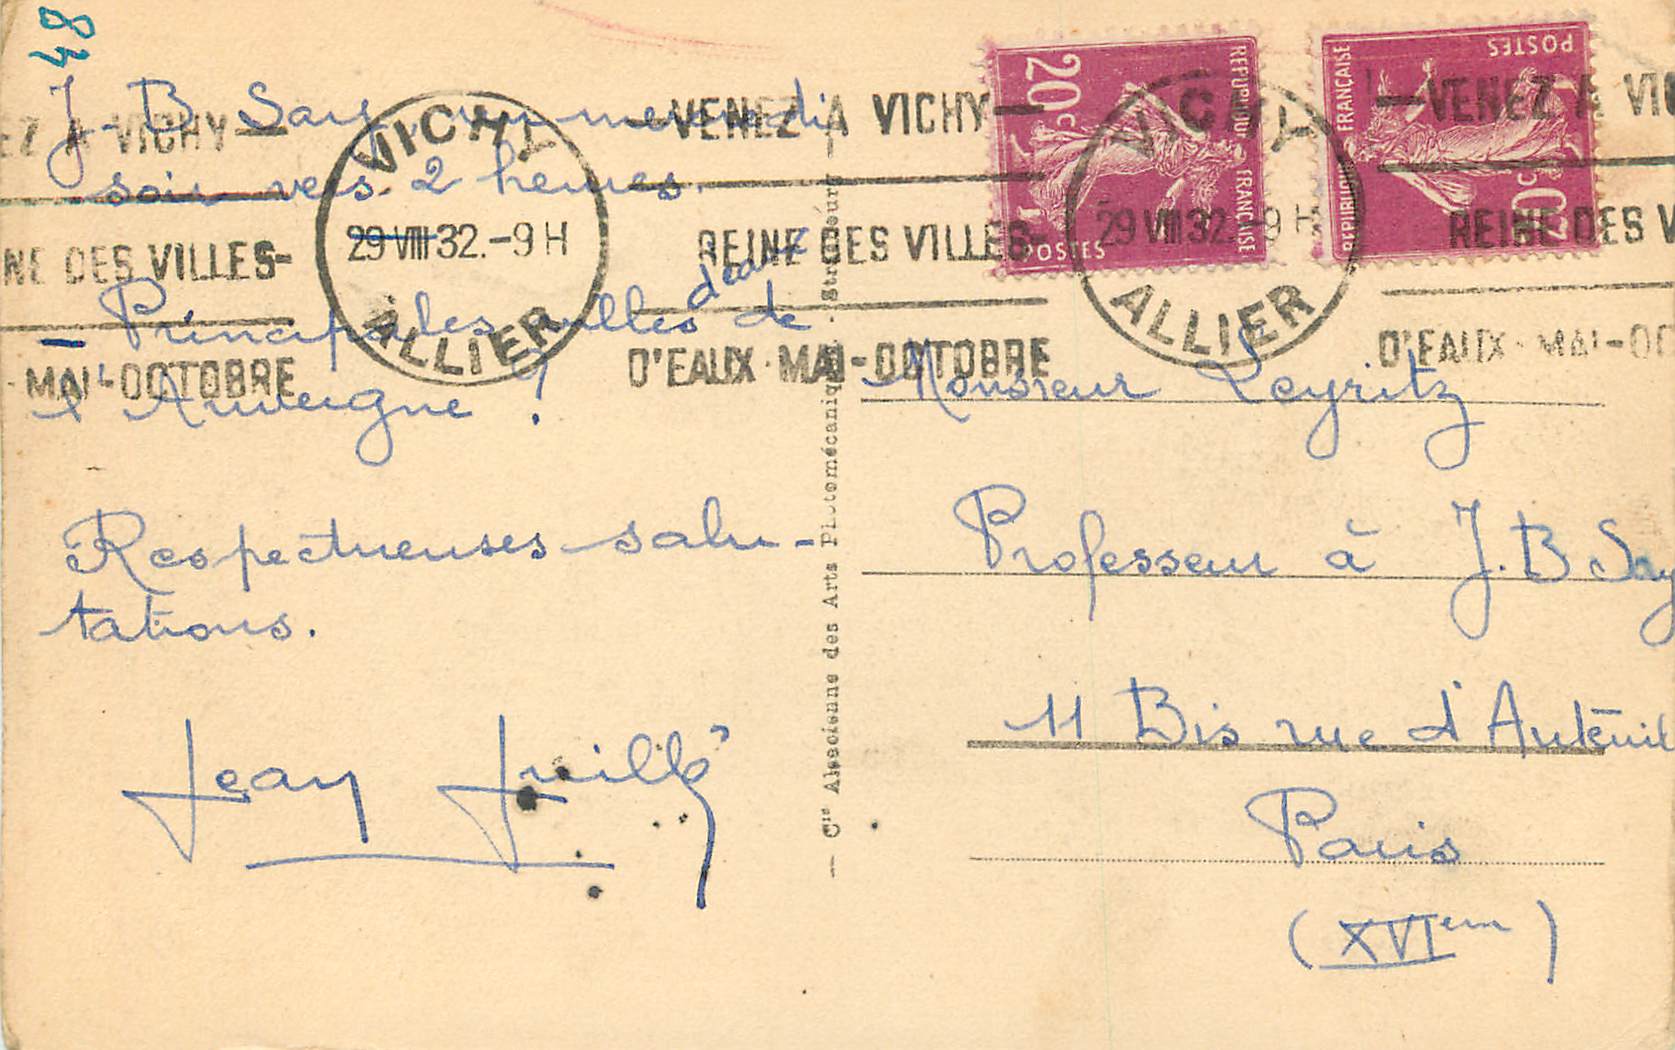 48
J. B. Say, un mercredi
soir vers 2 heures.
– Principales villes d'eaux de
l'Auvergne !
Respectueuses salu-
tations.
Jean Juillé
VENEZ A VICHY
REINE DES VILLES
D'EAUX · MAI-OCTOBRE
EZ A VICHY
NE DES VILLES
· MAI-OCTOBRE
VICHY
29 VIII 32.-9H
ALLIER
VICHY
29 VIII 32.-9H
ALLIER
VENEZ A VIC
REINE DES V
D'EAUX · MAI-OC
20c
REPUBLIQUE FRANÇAISE
POSTES
20c
REPUBLIQUE FRANÇAISE
POSTES
— Cie Alsacienne des Arts Photomécaniques
Monsieur Leyritz
Professeur à J. B Say
11 Bis rue d'Auteuil
Paris
(XVIem)